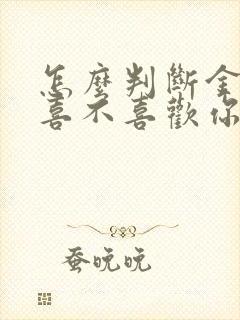 怎麼判斷金
喜不喜歡你
蚕晚晚